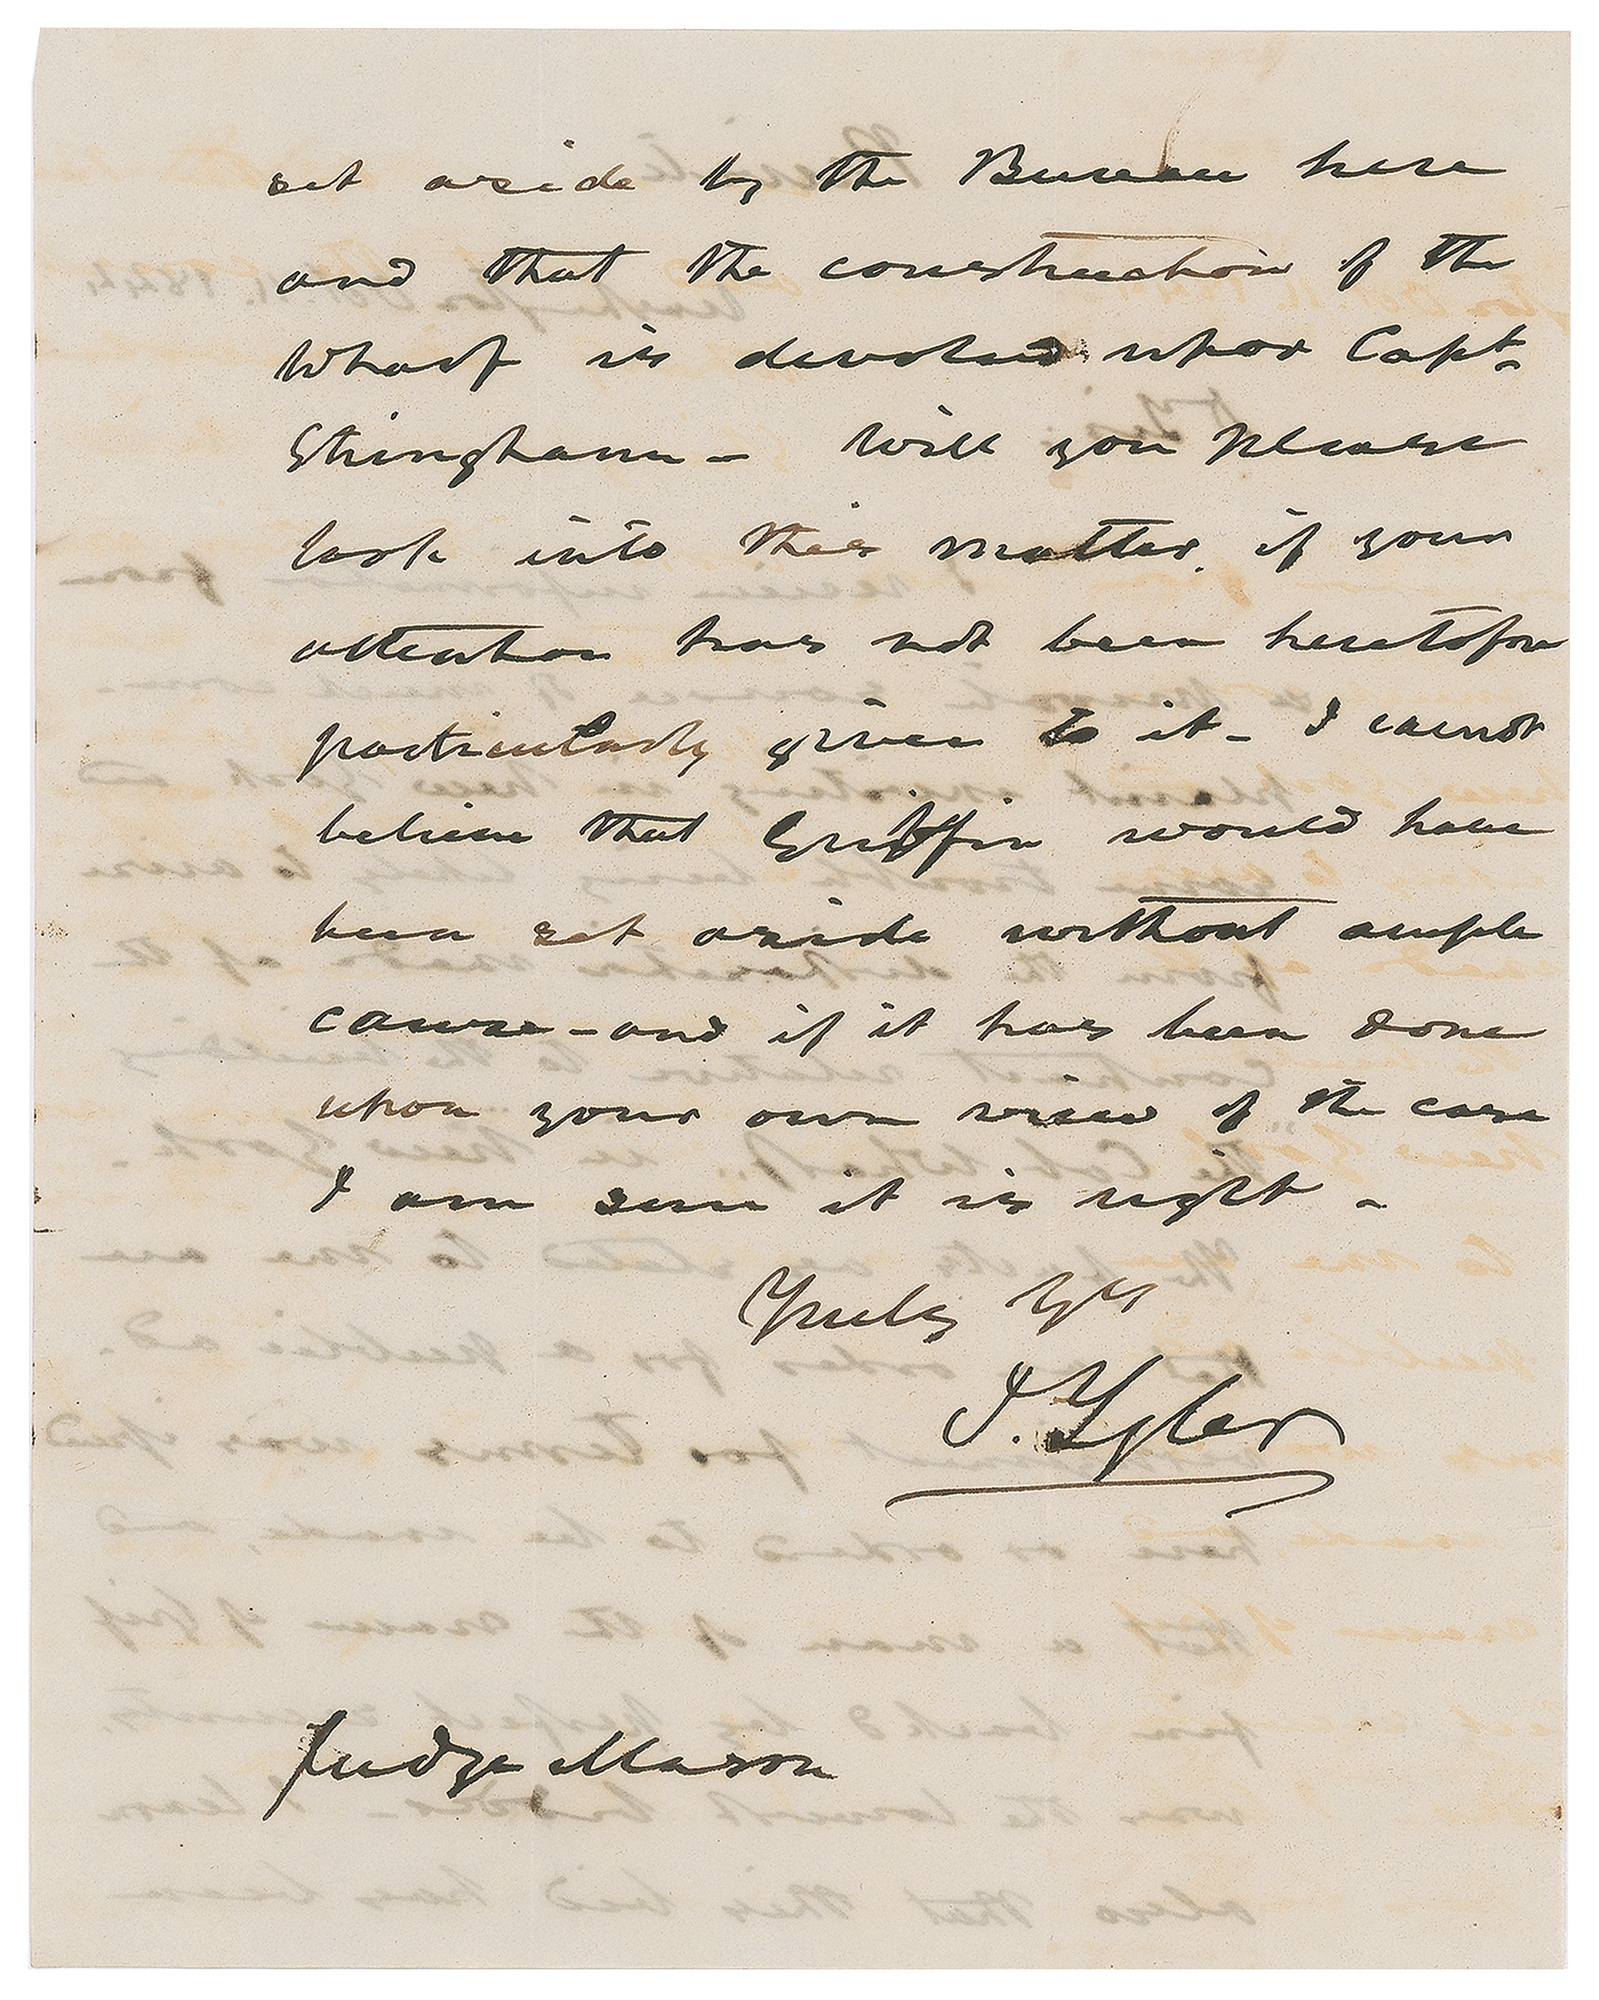 set aside by the Bureau here
and that the construction of the
Wharf is devolved upon Capt.
Stringham - Will you please
look into this matter, if your
attention has not been heretofore
particularly given to it - I cannot
believe that Griffin would have
been set aside without ample
cause - and if it has been done
upon your own view of the case
I am sure it is right -
Truly Yrs
J. Tyler
Judge Mason